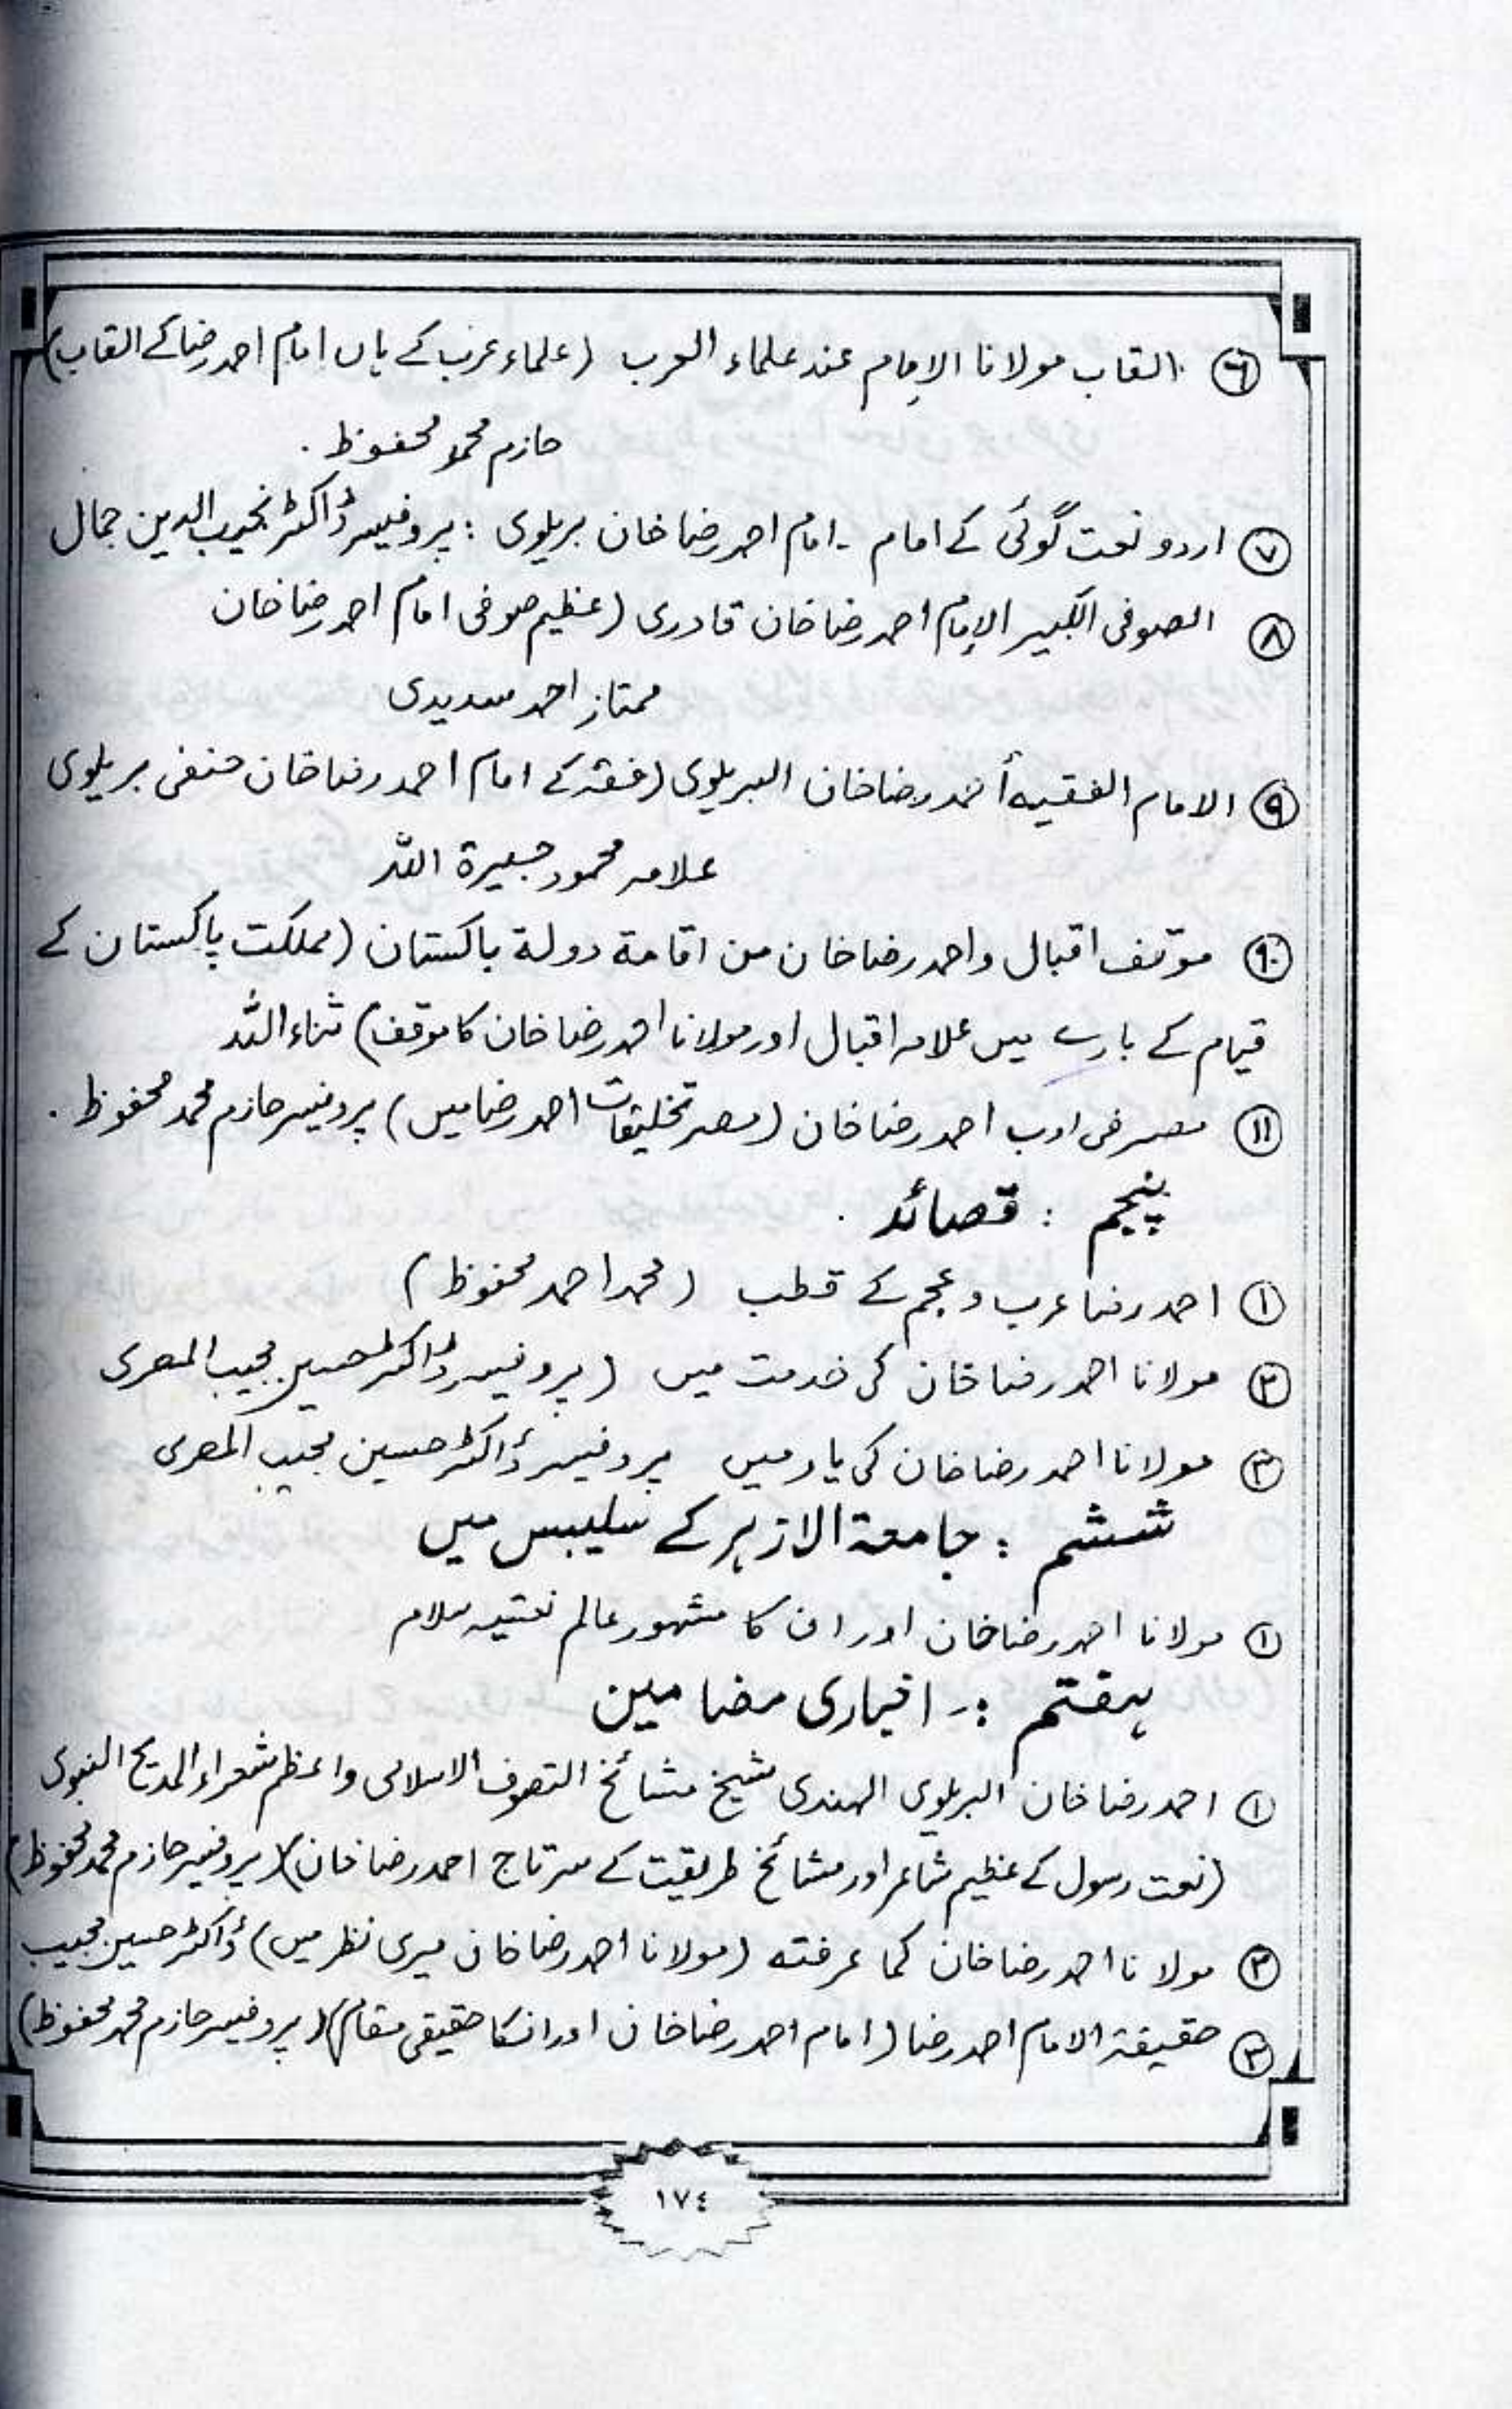 ۶ القاب مولانا الإمام عند علماء العرب (علماء عرب کے ہاں امام احمد رضا کے القاب)
حازم محمد محفوظ .
۷ اردو نعت گوئی کے امام - امام احمد رضا خان بریلوی : پروفیسر ڈاکٹر نجیب الدین جمال
۸ الصوفی الکبیر الإمام احمد رضا خان قادری (عظیم صوفی امام احمد رضا خان
ممتاز احمد سدیدی
۹ الامام الفقیہ أحمد رضا خان البریلوی (فقہ کے امام احمد رضا خان حنفی بریلوی
علامہ محمود جیرة اللہ
۱۰ موقف اقبال واحمد رضا خان من اقامة دولة باکستان (مملکت پاکستان کے
قیام کے بارے میں علامہ اقبال اور مولانا احمد رضا خان کا موقف) ثناء اللہ
۱۱ مصر فی ادب احمد رضا خان (مصر تخلیقات احمد رضا میں) پروفیسر حازم محمد محفوظ .
پنجم : قصائد .
۱ احمد رضا عرب و عجم کے قطب (محمد احمد محفوظ)
۲ مولانا احمد رضا خان کی خدمت میں (پروفیسر ڈاکٹر حسین مجیب المصری
۳ مولانا احمد رضا خان کی یاد میں پروفیسر ڈاکٹر حسین مجیب المصری
ششم : جامعة الازہر کے سلیبس میں
۱ مولانا احمد رضا خان اور ان کا مشہور عالم نعتیہ سلام
ہفتم :- اخباری مضامین
۱ احمد رضا خان البریلوی الہندی شیخ مشائخ التصوف الاسلامی واعظم شعراء المدیح النبوی
(نعت رسول کے عظیم شاعر اور مشائخ طریقت کے سرتاج احمد رضا خان) (پروفیسر حازم محمد محفوظ)
۲ مولانا احمد رضا خان کما عرفتہ (مولانا احمد رضا خان میری نظر میں) ڈاکٹر حسین مجیب
۳ حقیقة الامام احمد رضا (امام احمد رضا خان اور انکا حقیقی مقام) (پروفیسر حازم محمد محفوظ)
١٧٤